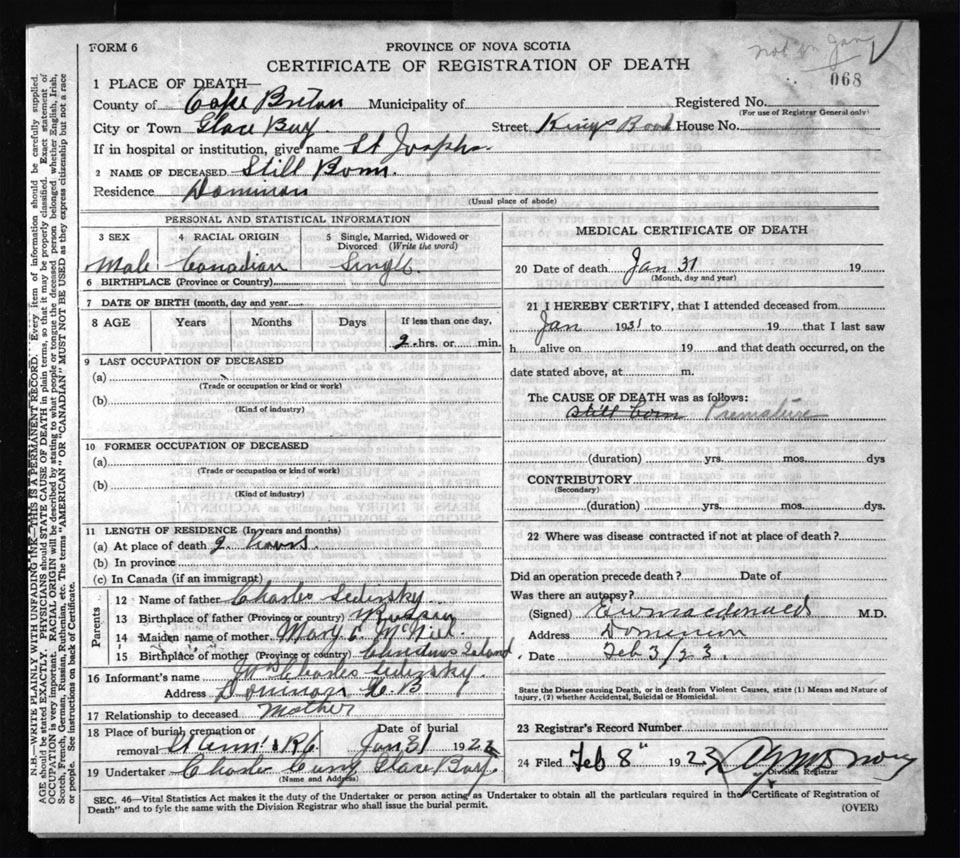 FORM 6
PROVINCE OF NOVA SCOTIA
CERTIFICATE OF REGISTRATION OF DEATH
not in Jany
068
1 PLACE OF DEATH—
County of Cape Breton Municipality of Registered No.
(For use of Registrar General only)
City or Town Glace Bay. Street Kings Road House No.
If in hospital or institution, give name St Josephs
2 NAME OF DECEASED Still Born.
Residence Dominion
(Usual place of abode)
PERSONAL AND STATISTICAL INFORMATION
3 SEX 4 RACIAL ORIGIN 5 Single, Married, Widowed or Divorced (Write the word)
Male Canadian Single.
6 BIRTHPLACE (Province or Country)
7 DATE OF BIRTH (month, day and year)
8 AGE Years Months Days If less than one day,
2 hrs. or min.
9 LAST OCCUPATION OF DECEASED
(a)
(Trade or occupation or kind or work)
(b)
(Kind of industry)
10 FORMER OCCUPATION OF DECEASED
(a)
(Trade or occupation or kind of work)
(b)
(Kind of industry)
11 LENGTH OF RESIDENCE (In years and months)
(a) At place of death 2 hours.
(b) In province
(c) In Canada (if an immigrant)
Parents
12 Name of father Charles Sedinsky
13 Birthplace of father (Province or country) Russia
14 Maiden name of mother Mary C. McNeil
15 Birthplace of mother (Province or country) Christmas Island
16 Informant's name Mrs Charles Sedinsky.
Address Dominion C.B
17 Relationship to deceased Mother
18 Place of burial cremation or removal St Ann's R.C. Date of burial Jan 31 1923
19 Undertaker Charles Curry Glace Bay.
(Name and Address)
MEDICAL CERTIFICATE OF DEATH
20 Date of death Jan 31 19
(Month, day and year)
21 I HEREBY CERTIFY, that I attended deceased from
Jan 1931 to 19 that I last saw
h alive on 19 and that death occurred, on the
date stated above, at m.
The CAUSE OF DEATH was as follows:
still born Premature
(duration) yrs. mos. dys
CONTRIBUTORY
(Secondary)
(duration) yrs. mos. dys.
22 Where was disease contracted if not at place of death?
Did an operation precede death? Date of
Was there an autopsy?
(Signed) E W Macdonald M.D.
Address Dominion
Date Feb 3/23.
State the Disease causing Death, or in death from Violent Causes, state (1) Means and Nature of Injury, (2) whether Accidental, Suicidal or Homicidal.
23 Registrar's Record Number
24 Filed Feb 8th 1923
Division Registrar
SEC. 46—Vital Statistics Act makes it the duty of the Undertaker or person acting as Undertaker to obtain all the particulars required in the "Certificate of Registration of
Death" and to fyle the same with the Division Registrar who shall issue the burial permit.
(OVER)
N.B.—WRITE PLAINLY WITH UNFADING INK—THIS IS A PERMANENT RECORD. Every item of information should be carefully supplied.
AGE should be stated EXACTLY. PHYSICIANS should STATE CAUSE OF DEATH in plain terms, so that it may be properly classified. Exact statement of
OCCUPATION is very important. RACIAL ORIGIN will be described by stating to what people or tongue the deceased person belonged whether English, Irish,
Scotch, French, German, Russian, Ruthenian, etc. The terms "AMERICAN" OR "CANADIAN" MUST NOT BE USED as they express citizenship but not a race
or people. See instructions on back of Certificate.